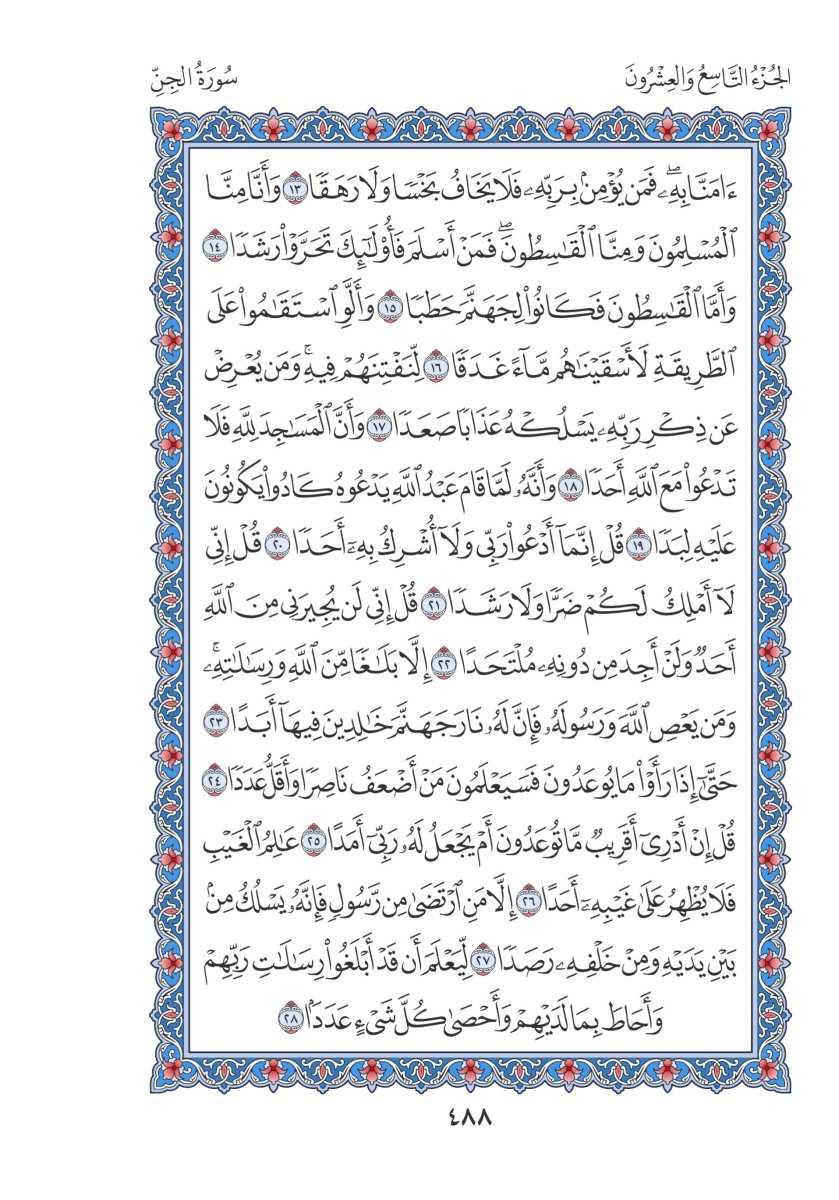 الجُزْءُ التَّاسِعُ وَالعِشْرُونَ
سُورَةُ الجِنِّ
ءَامَنَّا بِهِۦۖ فَمَن يُؤْمِنۢ بِرَبِّهِۦ فَلَا يَخَافُ بَخْسًا وَلَا رَهَقًا ١٣ وَأَنَّا مِنَّا
ٱلْمُسْلِمُونَ وَمِنَّا ٱلْقَٰسِطُونَۖ فَمَنْ أَسْلَمَ فَأُو۟لَٰٓئِكَ تَحَرَّوْا۟ رَشَدًا ١٤
وَأَمَّا ٱلْقَٰسِطُونَ فَكَانُوا۟ لِجَهَنَّمَ حَطَبًا ١٥ وَأَلَّوِ ٱسْتَقَٰمُوا۟ عَلَى
ٱلطَّرِيقَةِ لَأَسْقَيْنَٰهُم مَّآءً غَدَقًا ١٦ لِّنَفْتِنَهُمْ فِيهِۚ وَمَن يُعْرِضْ
عَن ذِكْرِ رَبِّهِۦ يَسْلُكْهُ عَذَابًا صَعَدًا ١٧ وَأَنَّ ٱلْمَسَٰجِدَ لِلَّهِ فَلَا
تَدْعُوا۟ مَعَ ٱللَّهِ أَحَدًا ١٨ وَأَنَّهُۥ لَمَّا قَامَ عَبْدُ ٱللَّهِ يَدْعُوهُ كَادُوا۟ يَكُونُونَ
عَلَيْهِ لِبَدًا ١٩ قُلْ إِنَّمَآ أَدْعُوا۟ رَبِّى وَلَآ أُشْرِكُ بِهِۦٓ أَحَدًا ٢٠ قُلْ إِنِّى
لَآ أَمْلِكُ لَكُمْ ضَرًّا وَلَا رَشَدًا ٢١ قُلْ إِنِّى لَن يُجِيرَنِى مِنَ ٱللَّهِ
أَحَدٌ وَلَنْ أَجِدَ مِن دُونِهِۦ مُلْتَحَدًا ٢٢ إِلَّا بَلَٰغًا مِّنَ ٱللَّهِ وَرِسَٰلَٰتِهِۦۚ
وَمَن يَعْصِ ٱللَّهَ وَرَسُولَهُۥ فَإِنَّ لَهُۥ نَارَ جَهَنَّمَ خَٰلِدِينَ فِيهَآ أَبَدًا ٢٣
حَتَّىٰٓ إِذَا رَأَوْا۟ مَا يُوعَدُونَ فَسَيَعْلَمُونَ مَنْ أَضْعَفُ نَاصِرًا وَأَقَلُّ عَدَدًا ٢٤
قُلْ إِنْ أَدْرِىٓ أَقَرِيبٌ مَّا تُوعَدُونَ أَمْ يَجْعَلُ لَهُۥ رَبِّىٓ أَمَدًا ٢٥ عَٰلِمُ ٱلْغَيْبِ
فَلَا يُظْهِرُ عَلَىٰ غَيْبِهِۦٓ أَحَدًا ٢٦ إِلَّا مَنِ ٱرْتَضَىٰ مِن رَّسُولٍ فَإِنَّهُۥ يَسْلُكُ مِنۢ
بَيْنِ يَدَيْهِ وَمِنْ خَلْفِهِۦ رَصَدًا ٢٧ لِّيَعْلَمَ أَن قَدْ أَبْلَغُوا۟ رِسَٰلَٰتِ رَبِّهِمْ
وَأَحَاطَ بِمَا لَدَيْهِمْ وَأَحْصَىٰ كُلَّ شَىْءٍ عَدَدًۢا ٢٨
٤٨٨